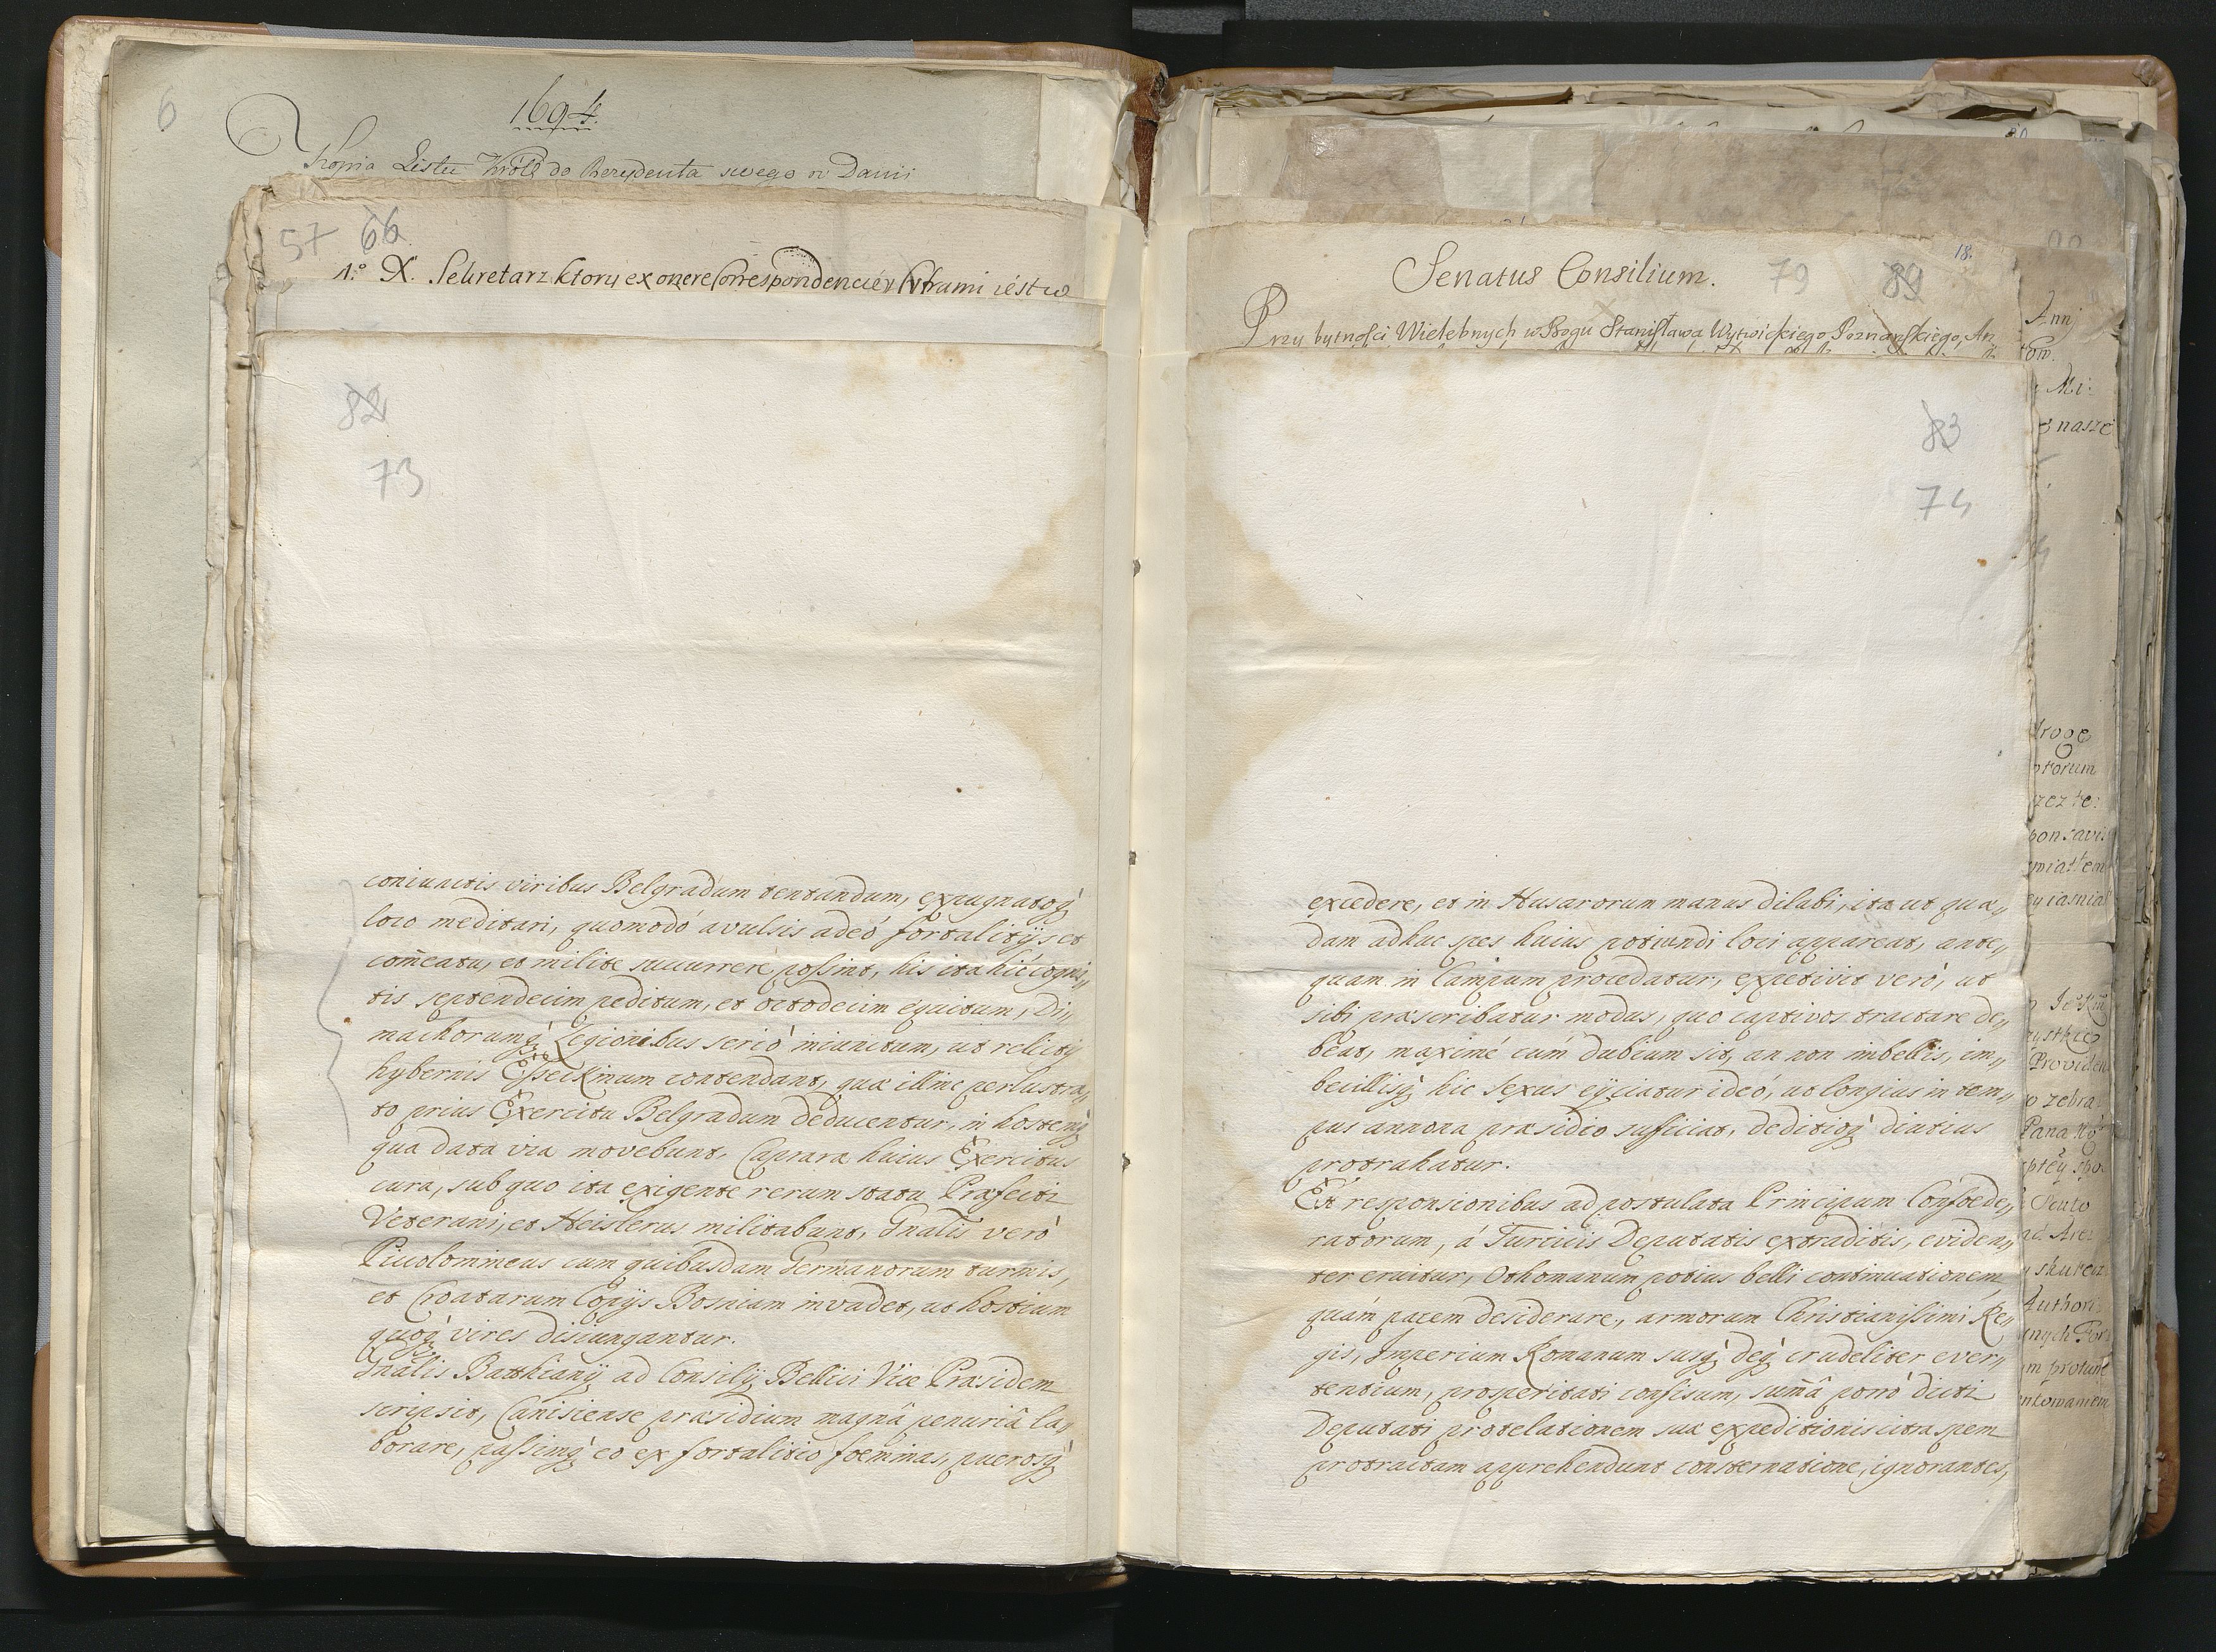 6
1694.
Kopia Listu Króla do Rezydenta swego w Danii
57 66
1.o X. Sekretarz ktory ex onere Correspondenciey iest w
82
73
coniunctis viribus Belgradum tentandum, expugnatoq;
loco meditari, quomodó avulsis adeó fortalitijs et
com̃eatu, et milite succurrere possint, his ita hic cogni„
tis septendecim peditum, et octodecim equitum, Di„
machorumq; Legionibus serió iniunctum, ut relictis
hybernis Essekinum contendant, quæ illinc perlustra„
to prius Exercitu Belgradum deducentur, in hostemq;
qua data via movebunt, Caprara huius Exercitus
cura, sub quo ita exigente rerum statu Præfecti
Veterani, et Heislerus militabunt, Gnalis veró
Picolomineus cum quibusdam Germanorum turmis,
et Croatarum Copijs Bosniam invadet, ut hostium
quoq; vires disiungantur.
Gnalis Batthiany ad Consilij Bellici Vice Præsidem
scripsit, Canisiense præsidium magnâ penuriâ la„
borare, passimq; eo ex fortalitio foeminas, puerosq;
Senatus Consilium.
79 89
18.
Przy bytności Wielebnych w Bogu Stanisława Wytwickiego Poznańskiego, An
83
74
excedere, et in Husarorum manus dilabi, ita ut quæ„
dam adhuc spes huius potiundi loci appareat, ante„
quam in Campum procedatur, expetivit veró, ut
sibi præscribatur modus, quo captivos tractare de„
beat, maximé cúm dubium sit, an non imbellis, im„
becillisq; hic sexus eijciatur ideó, ut longius in tem„
pus annona præsidio sufficiat, deditioq; diutius
protrahatur.
Ex responsionibus ad postulata Principum Confoede„
ratorum, á Turcicis Deputatis extraditis, eviden„
ter eruitur, Othomanum potius belli continuationem,
quám pacem desiderare, armorum Christianissimi Re„
gis, Imperium Romanum susq; deq; crudeliter ever„
tentium, prosperitati confisum, sum̃â porró dicti
Deputati protelationem suæ expeditionis citra spem
protractam apprehendunt consternatione, ignorantes,
Annj
Mi:
nasze